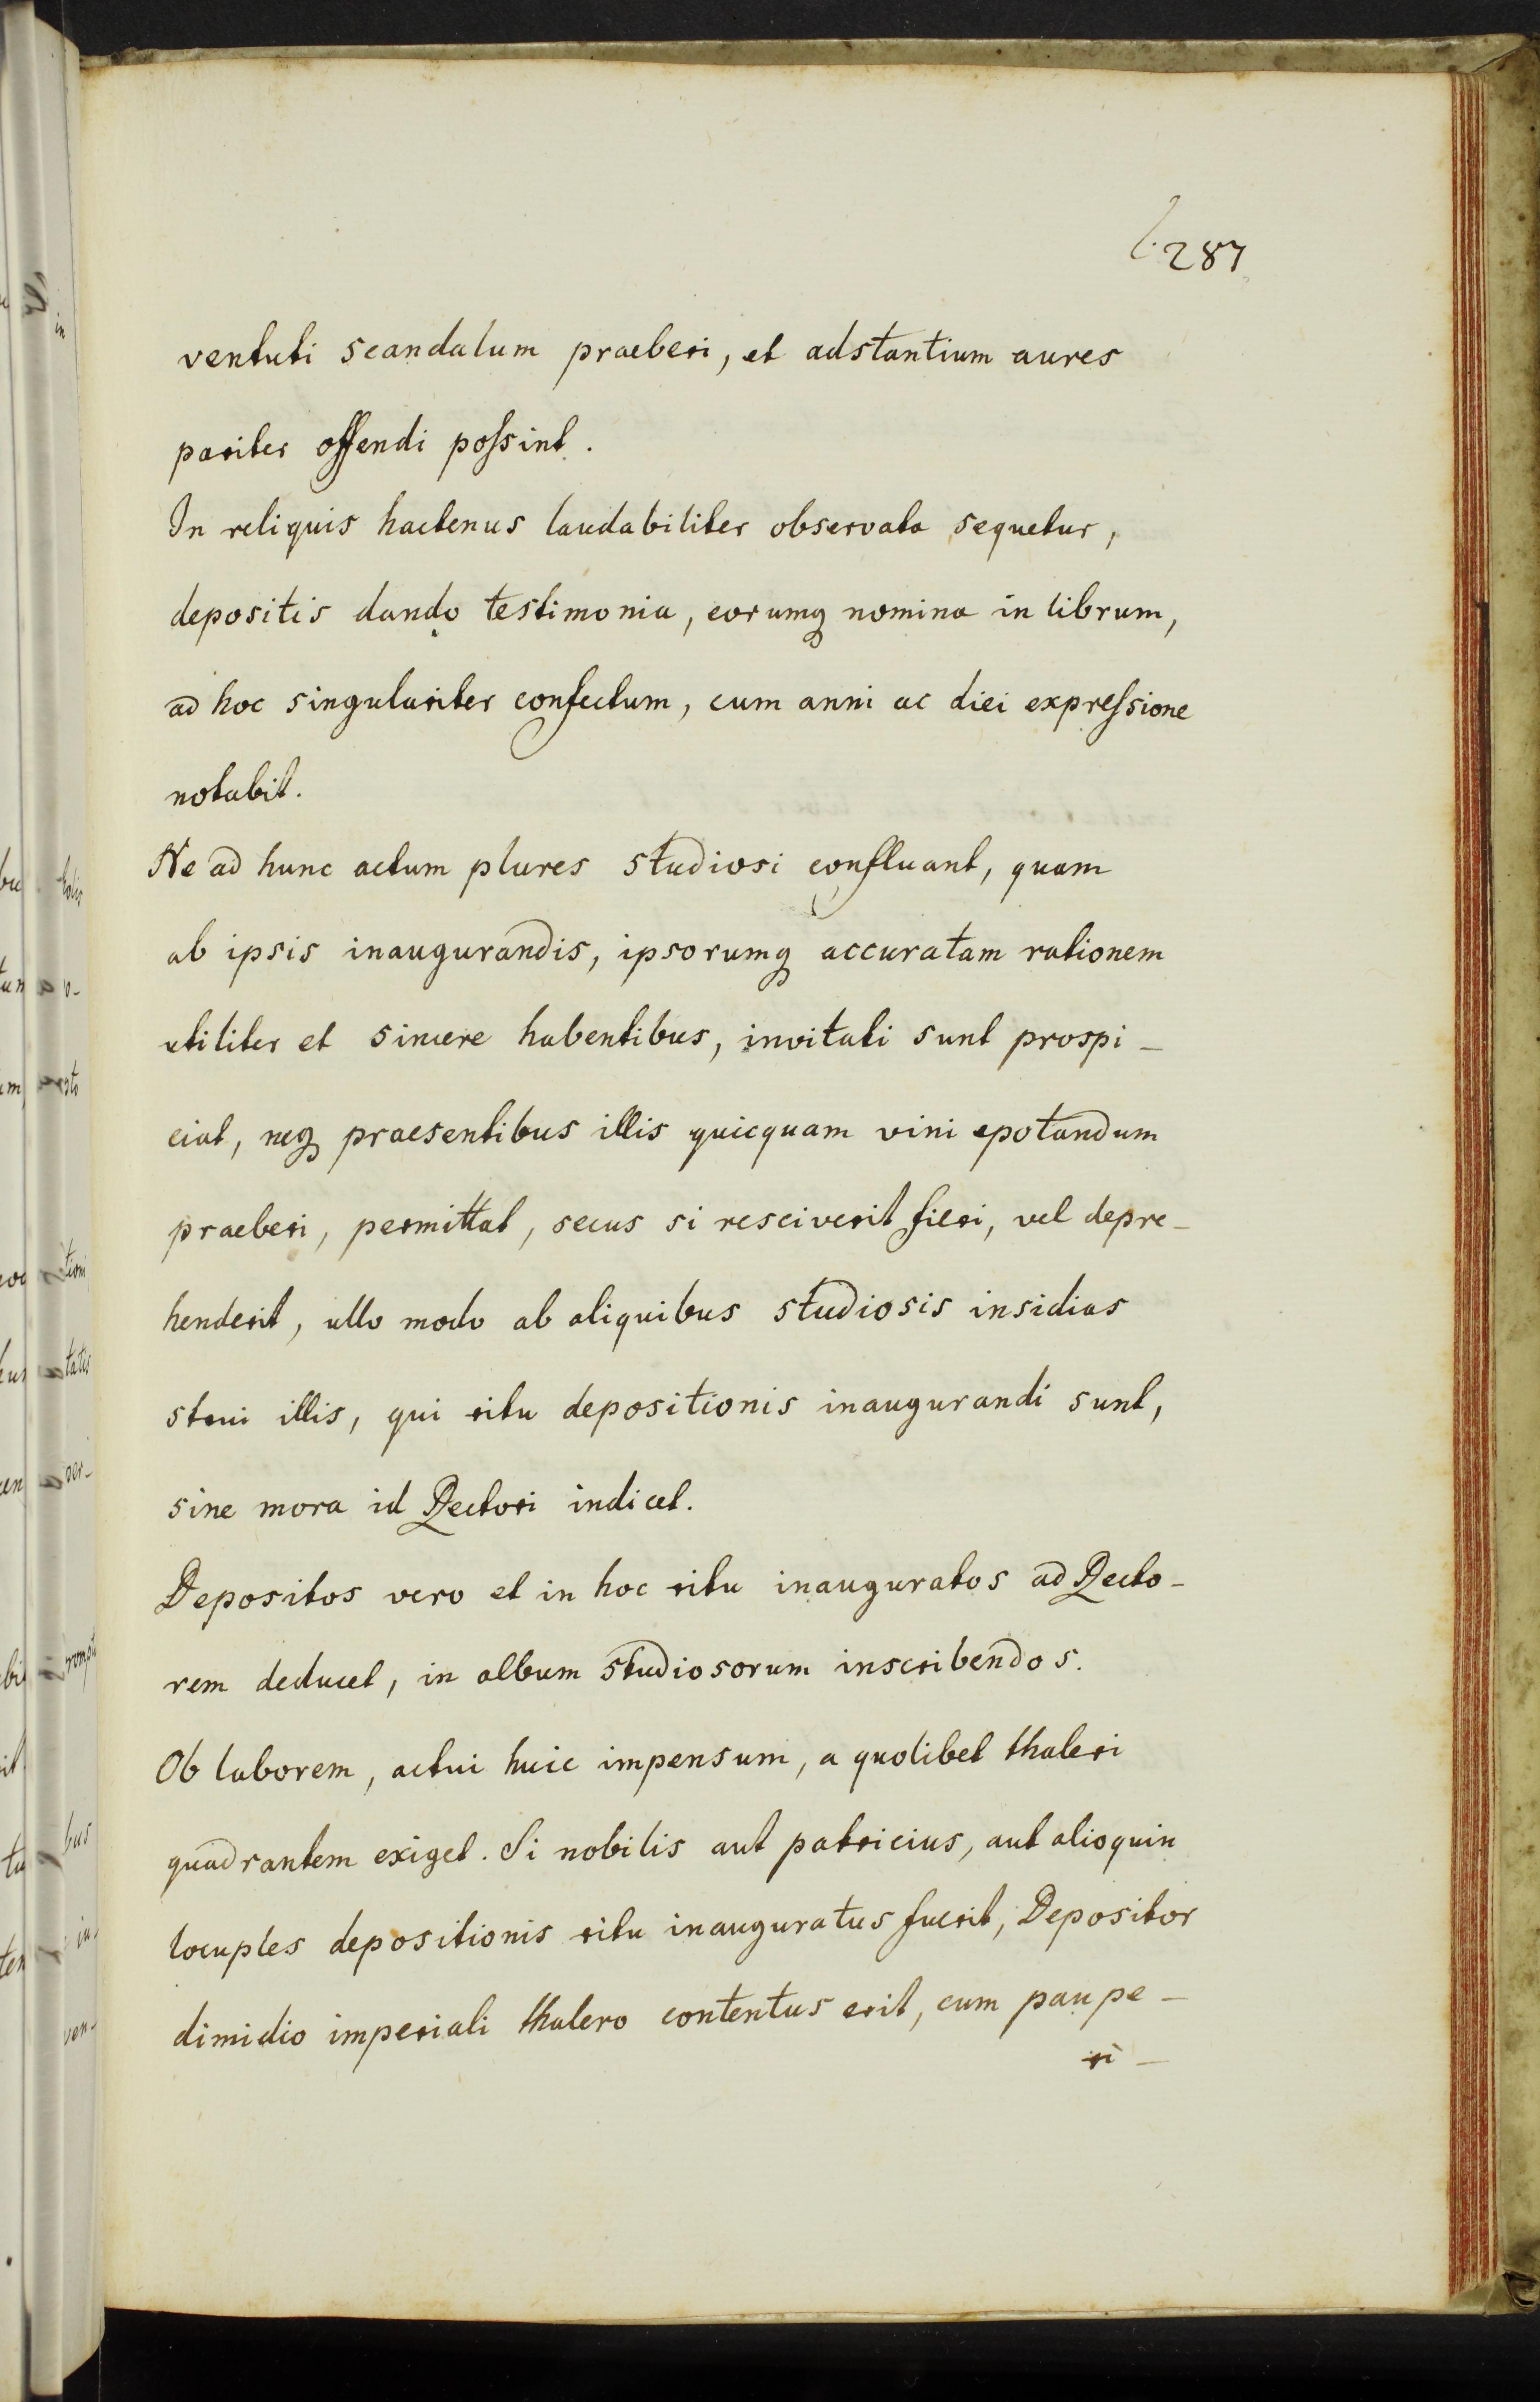 287
ventuti scandalum praeberi, et adstantium aures
pariter offendi poſsint.
In reliquis hactenus laudabiliter observata sequetur,
depositis dando testimonia, eorumq nomina in librum,
ad hoc singulariter confectum, cum anni ac diei expreſsione
notabit.
Ne ad hunc actum plures studiosi confluant, quam
ab ipsis inaugurandis, ipsorumq accuratam rationem
utiliter et sincere habentibus, invitati sunt prospi-
ciat, neq praesentibus illis quicquam vini epotandum
praeberi, permittat, secus si resciverit fieri, vel depre-
henderit, ullo modo ab aliquibus studiosis insidias
strui illis, qui ritu depositionis inaugurandi sunt,
sine mora id Rectori indicet.
Depositos vero et in hoc ritu inauguratos ad Recto-
rem deducet, in album studiosorum inscribendos.
Ob laborem, actui huic impensum, a quolibet thaleri
quadrantem exiget. Si nobilis aut patricius, aut alioquin
locuples depositionis ritu inauguratus fuerit, Depositor
dimidio imperiali thalero contentus erit, cum paupe-
ri-